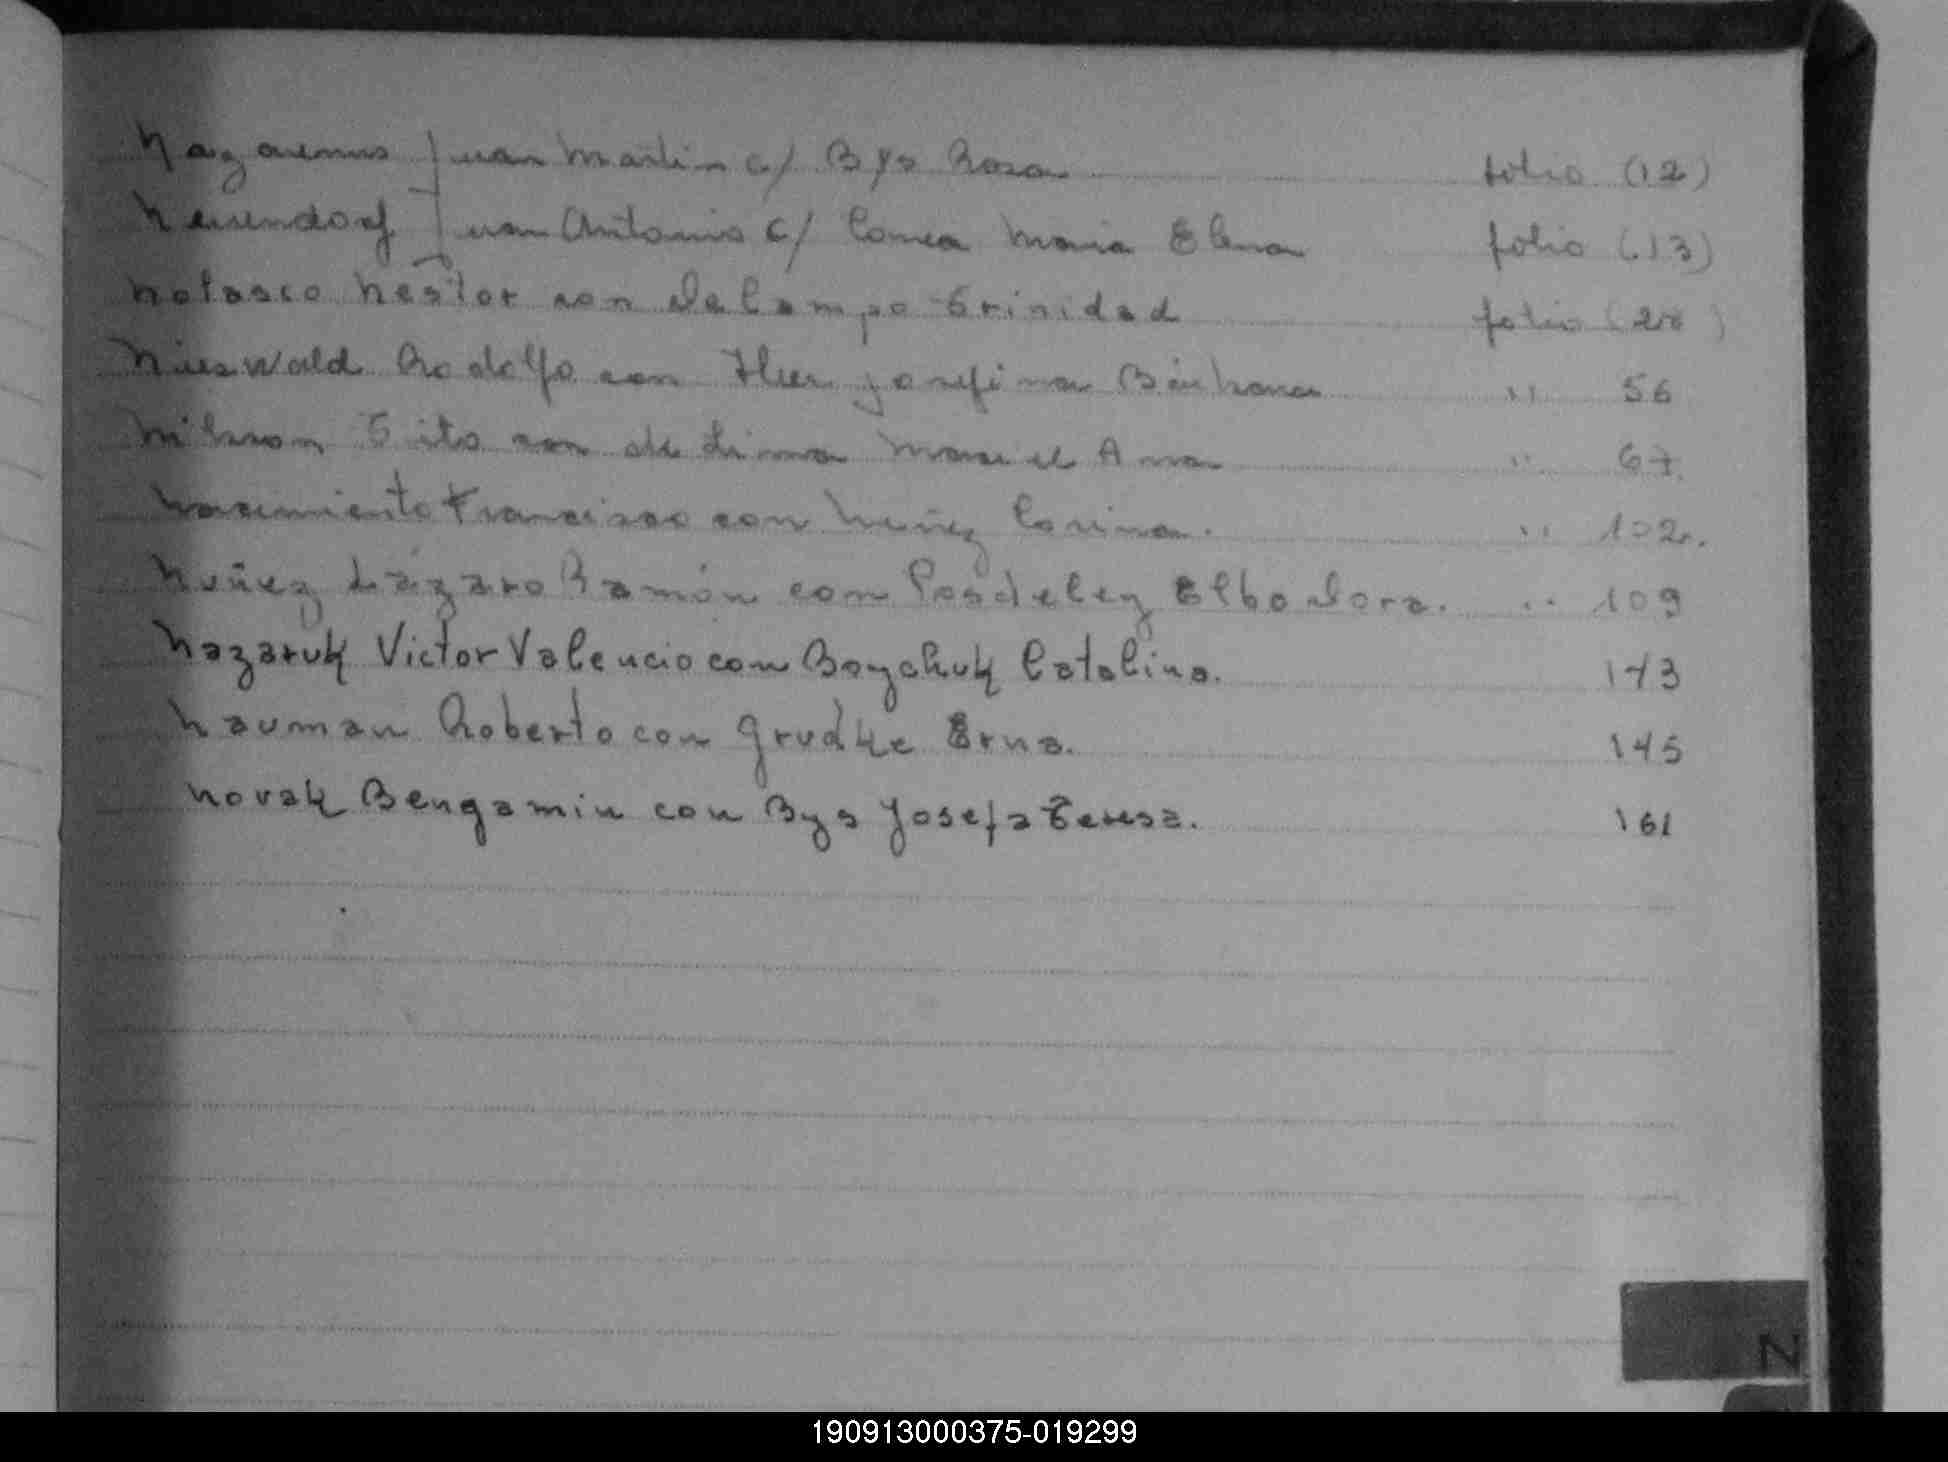 Nazarenus Juan Martin c/ Bys Rosa folio (12)
Neisendorf Juan Antonio c/ Correa Maria Elena folio (13)
Nolasco Nestor con Del Campo Trinidad folio (28)
Rodolfo con Josefina Bárbara " 56
Nilsson Tito con de Lima Maciel Ana " 67.
Nacimiento Francisco con Nuñez Corina. " 102.
Nuñez Lázaro Ramón con Posdeley Elba Dora. " 109
Nazaruk Victor Valencio con Boychuk Catalina. 143
Nauman Roberto con Grudke Erna. 145
Novak Bengamin con Bys Josefa Teresa. 161
N
190913000375-019299